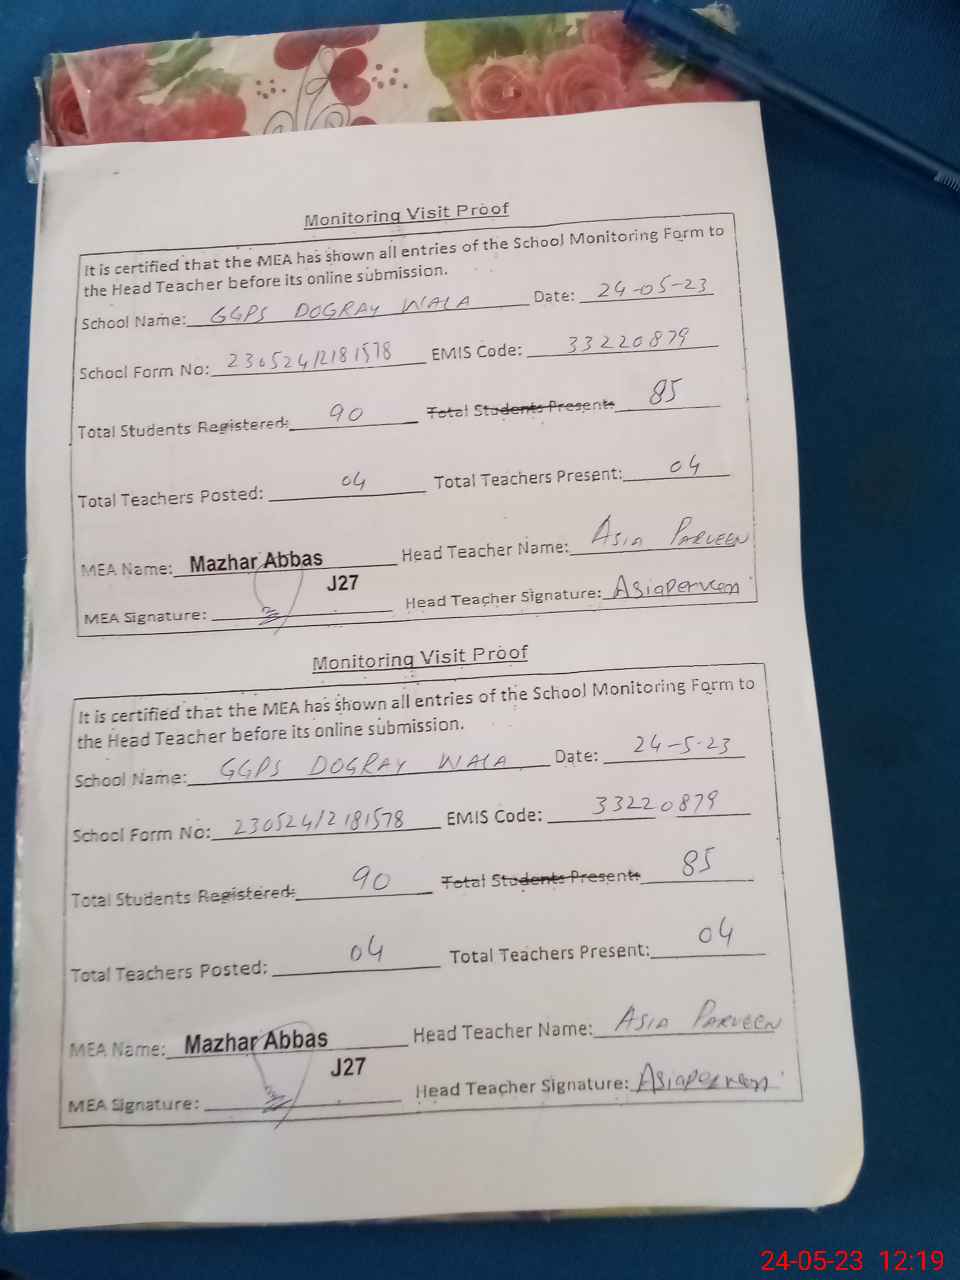 Monitoring Visit Proof
It is certified that the MEA has shown all entries of the School Monitoring Form to
the Head Teacher before its online submission.
School Name: GGPS DOGRAY WALA Date: 24-05-23
School Form No: 230524/2181578 EMIS Code: 33220879
Total Students Registered: 90 Total Students Present: 85
Total Teachers Posted: 04 Total Teachers Present: 04
MEA Name: Mazhar Abbas Head Teacher Name: ASIA PARVEEN
J27
MEA Signature: Head Teacher Signature: Asiaperveen
Monitoring Visit Proof
It is certified that the MEA has shown all entries of the School Monitoring Form to
the Head Teacher before its online submission.
School Name: GGPS DOGRAY WALA Date: 24-5-23
School Form No: 230524/2181578 EMIS Code: 33220879
Total Students Registered: 90 Total Students Present: 85
Total Teachers Posted: 04 Total Teachers Present: 04
MEA Name: Mazhar Abbas Head Teacher Name: ASIA PARVEEN
J27
MEA Signature: Head Teacher Signature: Asiaperveen
24-05-23 12:19